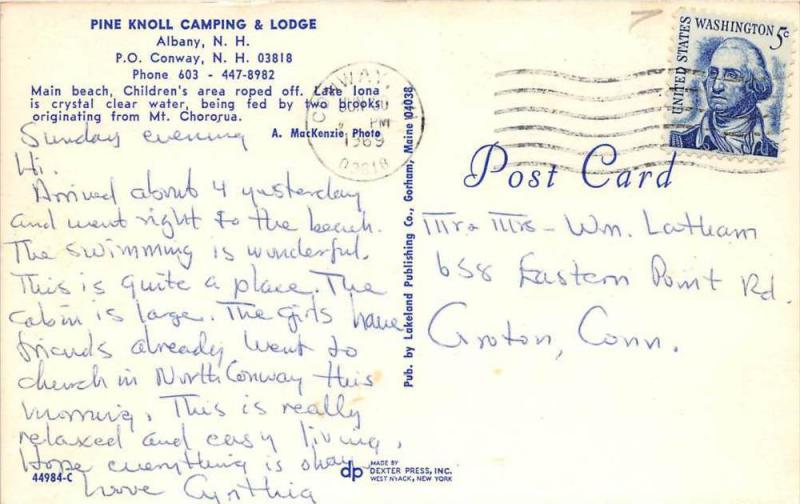 PINE KNOLL CAMPING & LODGE
Albany, N. H.
P.O. Conway, N. H. 03818
Phone 603 - 447-8982
Main beach, Children's area roped off. Lake Iona
is crystal clear water, being fed by two brooks
originating from Mt. Chororua.
A. MacKenzie Photo
Sunday evening
Hi.
Arrived about 4 yesterday
and went right to the beach.
The swimming is wonderful.
This is quite a place. The
cabin is large. The girls have
friends already. Went to
church in North Conway this
morning. This is really
relaxed and easy living.
Hope everything is okay.
Love Cynthia
44984-C
dp
MADE BY
DEXTER PRESS, INC.
WEST NYACK, NEW YORK
Pub. by Lakeland Publishing Co., Gorham, Maine 04038
CONWAY,
PM
1969
03818
UNITED STATES
WASHINGTON 5c
Post Card
Mr & Mrs - Wm. Latham
658 Eastern Point Rd.
Groton, Conn.